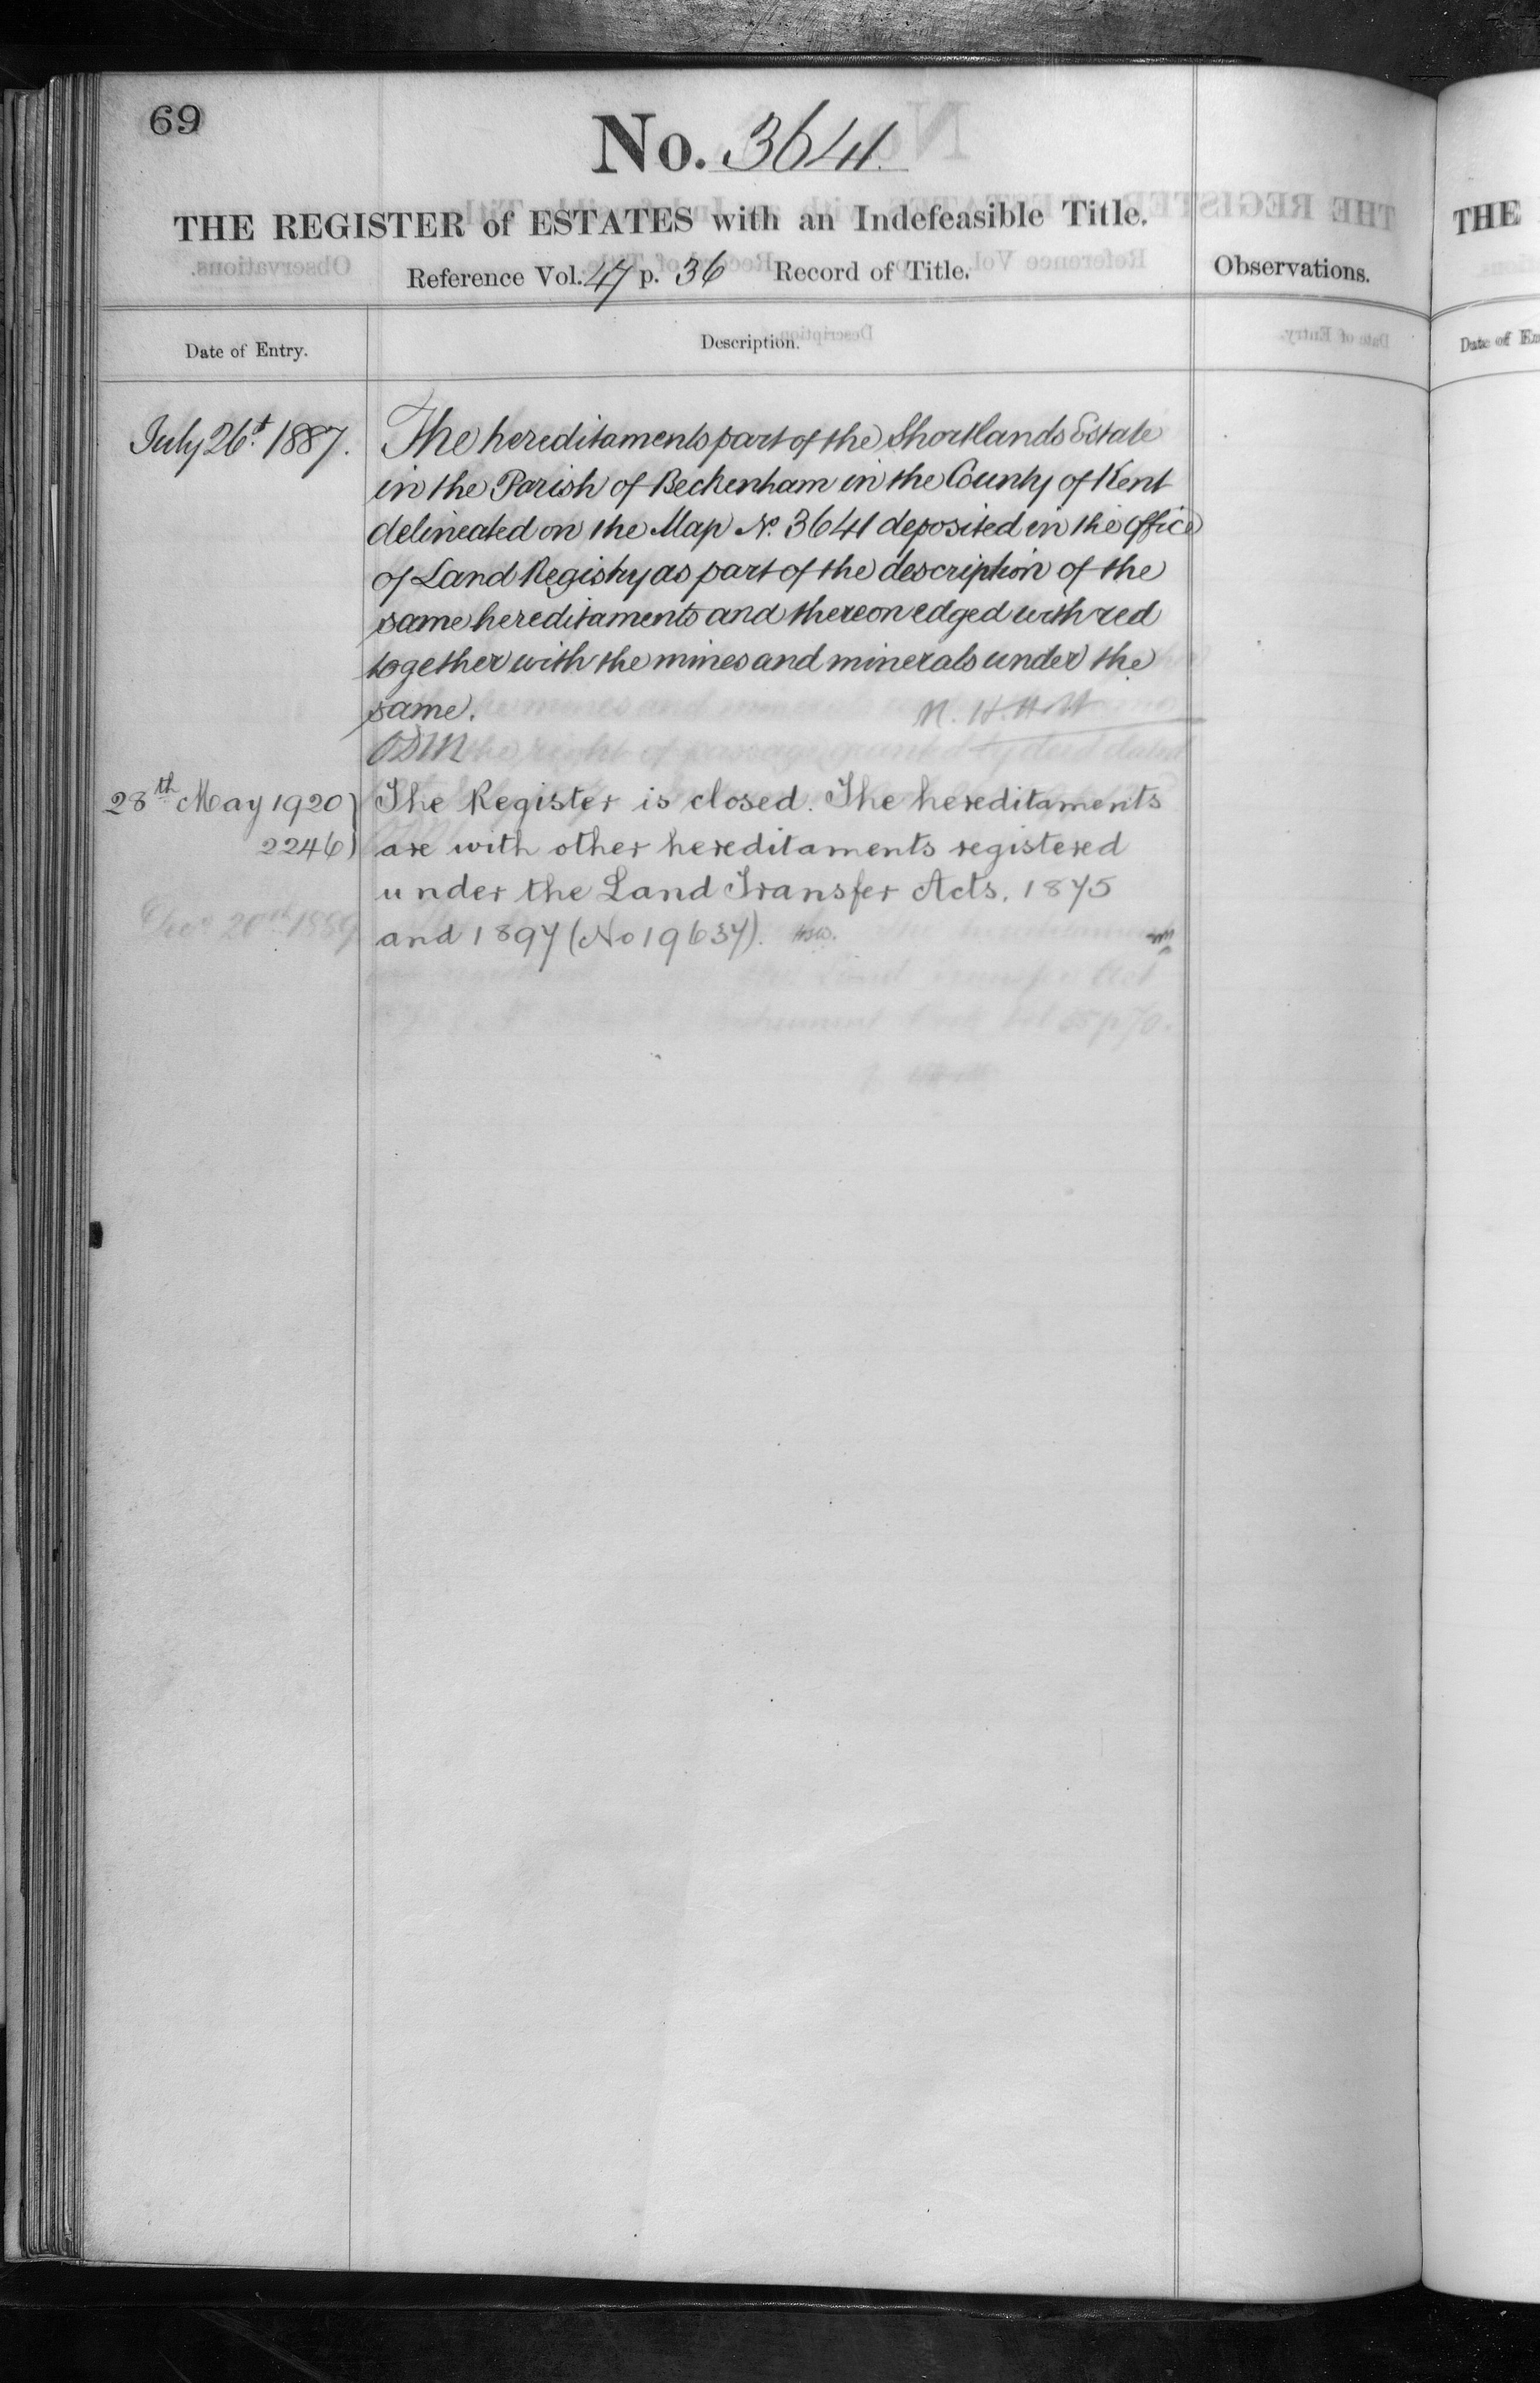 69
No. 3641.
THE REGISTER of ESTATES with an Indefeasible Title.
Reference Vol. 47 p. 36 Record of Title.
Observations.
Date of Entry.
Description.
July 26st 1887.
The hereditaments part of the Shortlands Estate
in the Parish of Beckenham in the County of Kent
delineated on the Map No. 3641 deposited in the Office
of Land Registry as part of the description of the
same hereditaments and thereon edged with red
together with the mines and minerals under the
same.
28th May 1920
2246
The Register is closed. The hereditaments
are with other hereditaments registered
under the Land Transfer Acts, 1875
and 1897 (No 19637).
THE
Date of En